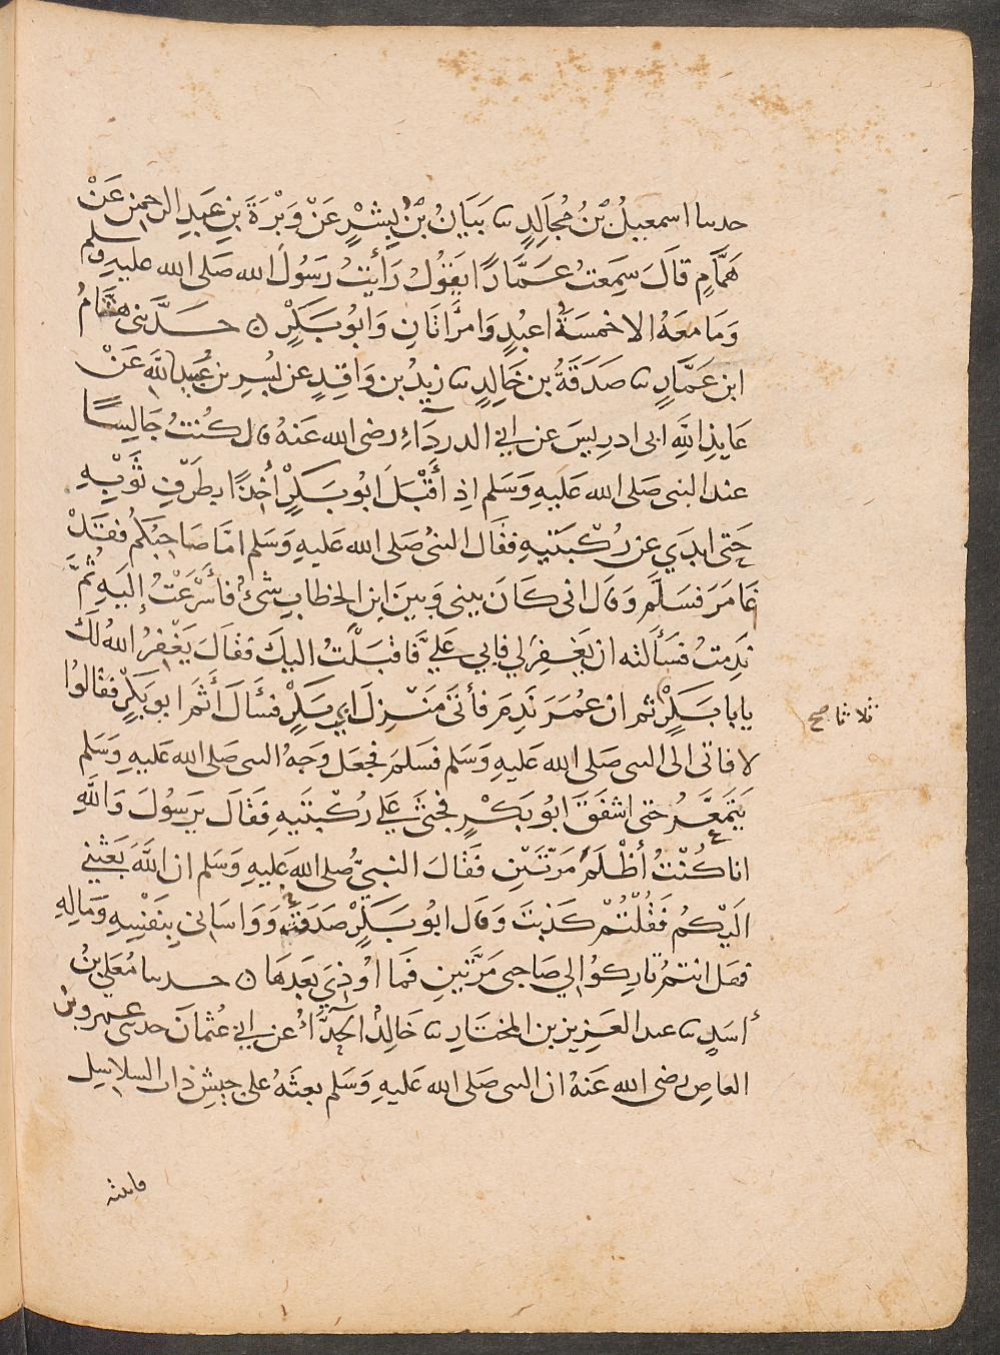 حدسا اسمعيلُ بْنُ مُجَالِدٍ سا بَيَانُ بْنُ بِشْرٍ عَنْ وَبْرَةَ بنِ عَبدِ الرحمن عَنْ
هَمَّامٍ قَالَ سَمِعتُ عَمَّارًا يَقوُلُ رَأَيتُ رَسُولَ الله صَلى الله عليهِ وسلم
وَمَا معَهُ الا خمسَةُ اعبُدٍ وَامرَأتَانِ وَابُو بَكْرٍ ن حَدَّثنى هشَامُ
ابن عَمَّارٍ سا صَدَقَةُ بن خَالِدٍ سا زيدُ بن وَاقِدٍ عن بُسرِ بن عُبَيدِ اللَّهِ عَنْ
عَايِذِ اللَّهِ ابى ادرِيسَ عن ابى الدردَآءِ رضى الله عَنهُ قال كُنتُ جَالِسًا
عند النبى صَلى الله عَلَيهِ وَسَلم اذِ أَقْبَلَ ابُو بَكْرٍ أخِذًا بطَرَفِ ثَوْبِهِ
حَتى ابدَي عن رُكْبَتَيهِ فقَال النبىُ صَلى الله عَليهِ وَسَلم امَّا صَاحِبُكُم فقَدْ
غَامَرَ فسَلَّمَ وَقال انى كَانَ بينى وَبينَ ابنِ الخطابِ شىءٌ فأَسْرَعْتُ إِليَهِ ثُمَّ
نَدِمتُ فسَأَلته ان يَغفِرَ لي فابي عَليَّ فَاقبَلْتُ اليكَ فقَالَ يَغْفِرُ اللهُ لَكَ
يابا بَكْرٍ ثم ان عُمَرَ نَدِمَ فأتىَ مَنْزِلَ ابي بَكْرٍ فسَأَلَ أَثَمَ ابو بَكْرٍ فقالوُا
ثلاثا صح
لا فاتى الى النبى صَلى الله عَليهِ وَسَلم فسَلمَ فجعَل وَجهُ النبى صَلى الله عَليهِ وَسَلم
يَتَمَعَّرُ حتى اشفَقَ ابُو بَكْرٍ فجثَى عَلي رُكْبتَيهِ فقَالَ يَرسُولَ وَاللَّهِ
انا كُنْتُ أَظْلَمَ مَرَّتَيْنِ فقَالَ النبيُّ صَلى الله عَليهِ وَسَلم ان اللَّهَ بَعَثنِي
الَيْكُمْ فَقُلْتُمْ كَذَبتَ وَقال ابُو بَكْرٍ صَدَقتَ وَوَاسَانى بِنَفْسِهِ وَمَالِهِ
فهَل انتمُ تَارِكوُا لي صَاحِبى مَرَّتَينِ فمَا اوُذِيَ بَعدَهَا ن حدسا مُعَلى بنُ
أَسَدٍ سا عبد العَزِيز بن المختَارِ سا خَالِدُ الحَذَّاءُ عن ابي عُثمانَ حدثنى عمرو بن
العاصِ رضى الله عَنهُ ان النبى صَلى الله عَليهِ وَسَلم بعثَهُ على جيشِ ذات السلاسِل
فاتيته